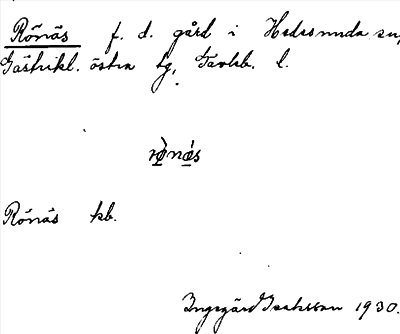 Rönäs f. d. gård i Hedesunda sn,
Gästrikl. östra tg, Gävleb. l.
Rönäs kb.
Ingegärd Isaksson 1930.